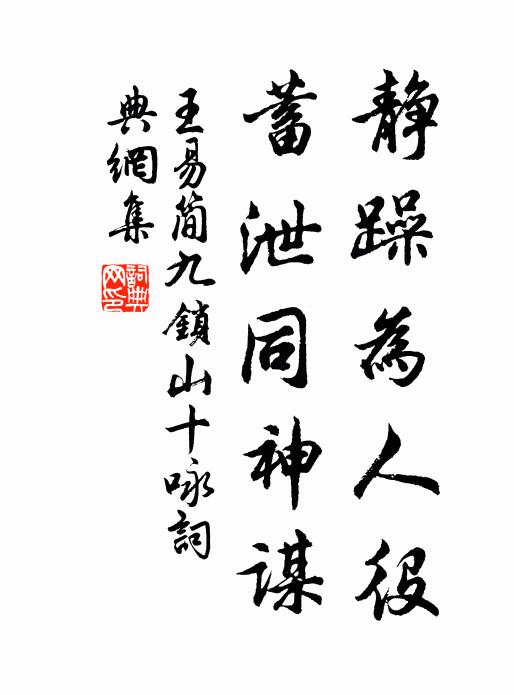 靜躁為人役
蓄泄同神謀
王易簡九鎖山十咏詞
典網集
詞典網印